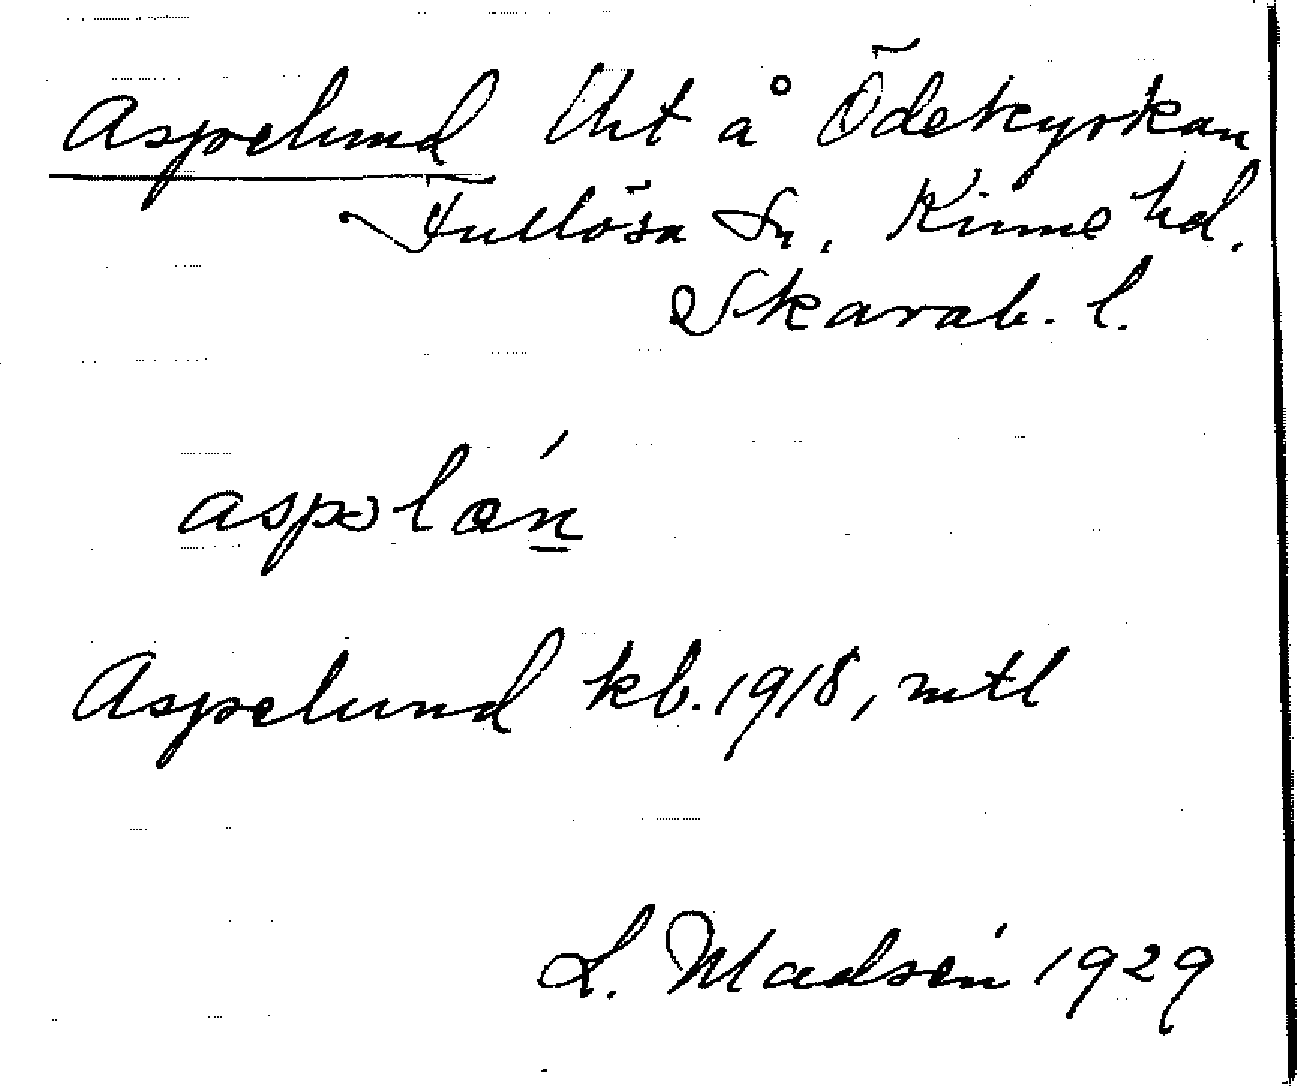 Aspelund Uht å Ödekyrkan
Fullösa Sn, Kinne hd.
Skarab. l.
aspəlán̲
Aspelund kb. 1918, mtl
L. Madsén 1929